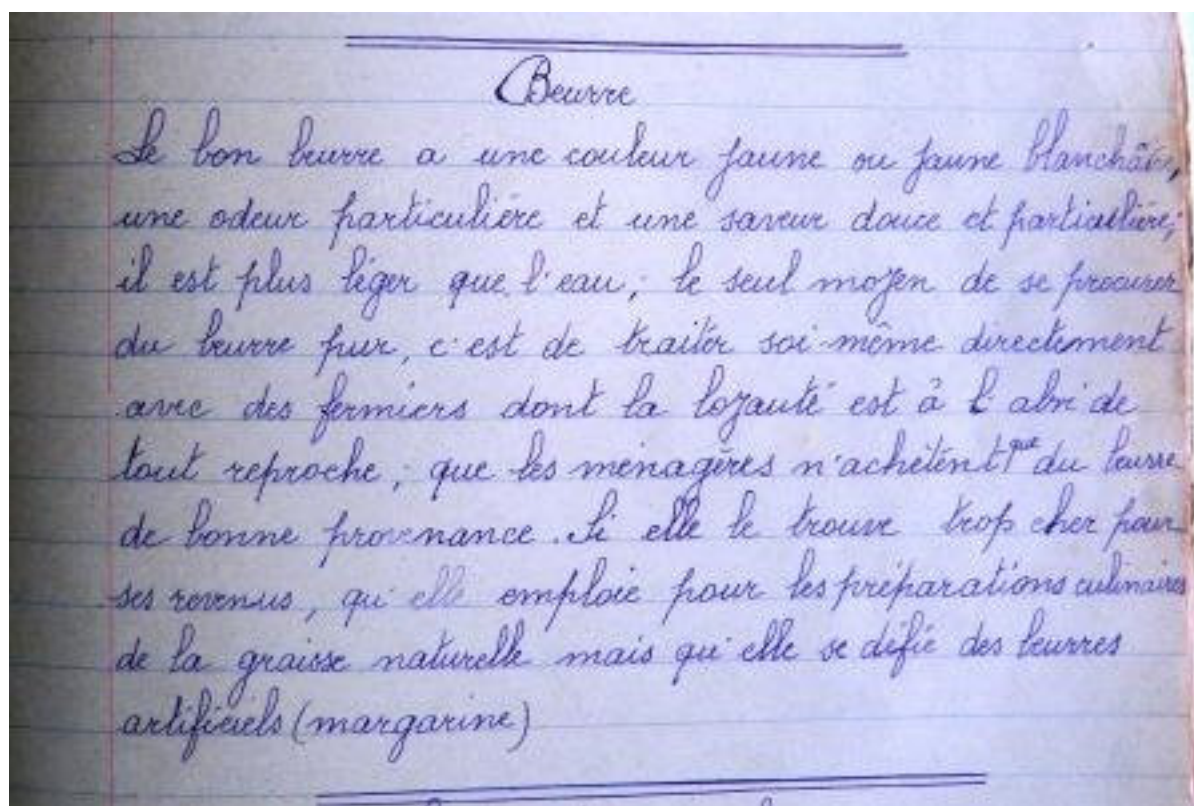 Beurre
Le bon beurre a une couleur jaune ou jaune blanchâtre,
une odeur particulière et une saveur douce et particulière;
il est plus léger que l'eau; le seul moyen de se procurer
du beurre pur, c'est de traiter soi-même directement
avec des fermiers dont la loyauté est à l'abri de
tout reproche; que les ménagères n'achètent que du beurre
de bonne provenance. Si elle le trouve trop cher pour
ses revenus, qu'elle emploie pour les préparations culinaires
de la graisse naturelle mais qu'elle se défie des beurres
artificiels (margarine)